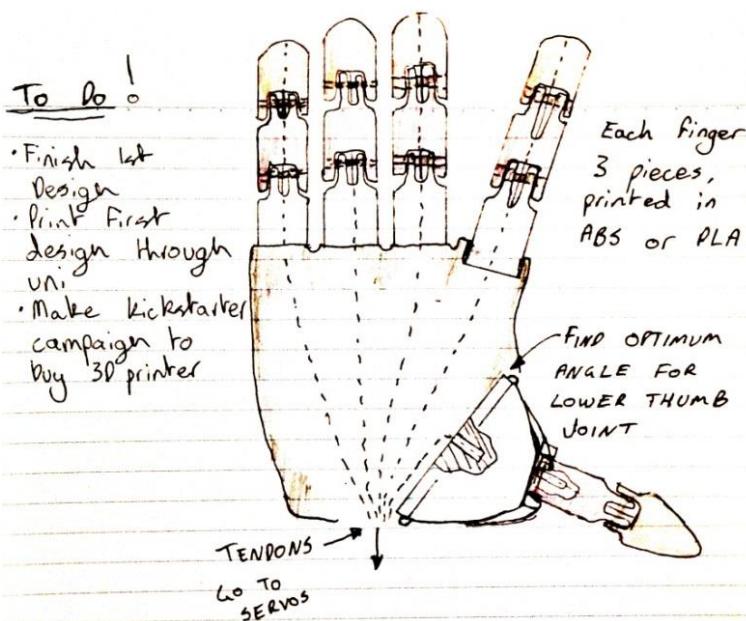 To Do !
· Finish 1st
Design
· Print First
design through
uni
· Make kickstarter
campaign to
buy 3D printer
Each finger
3 pieces,
printed in
ABS or PLA
FIND OPTIMUM
ANGLE FOR
LOWER THUMB
JOINT
TENDONS
GO TO
SERVOS